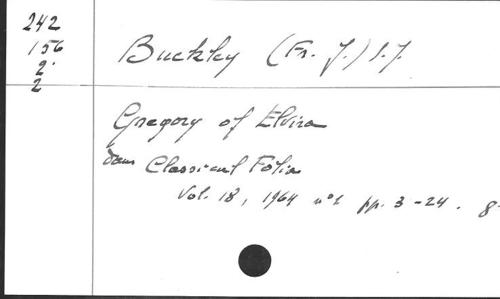 242
156
2
2
Buckley (Fr. J.) S.J.
Gregory of Elvira
dans Classical Folia
Vol. 18, 1964 n°1 pp. 3-24. 8